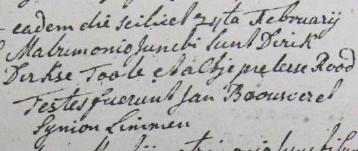 eadem die scilicet 24ta February
Matrimonio Juncti Sunt Dirk
Dirkse Toole et altje pieterse Rood
Testes fuerunt Jan
Symon Limmen